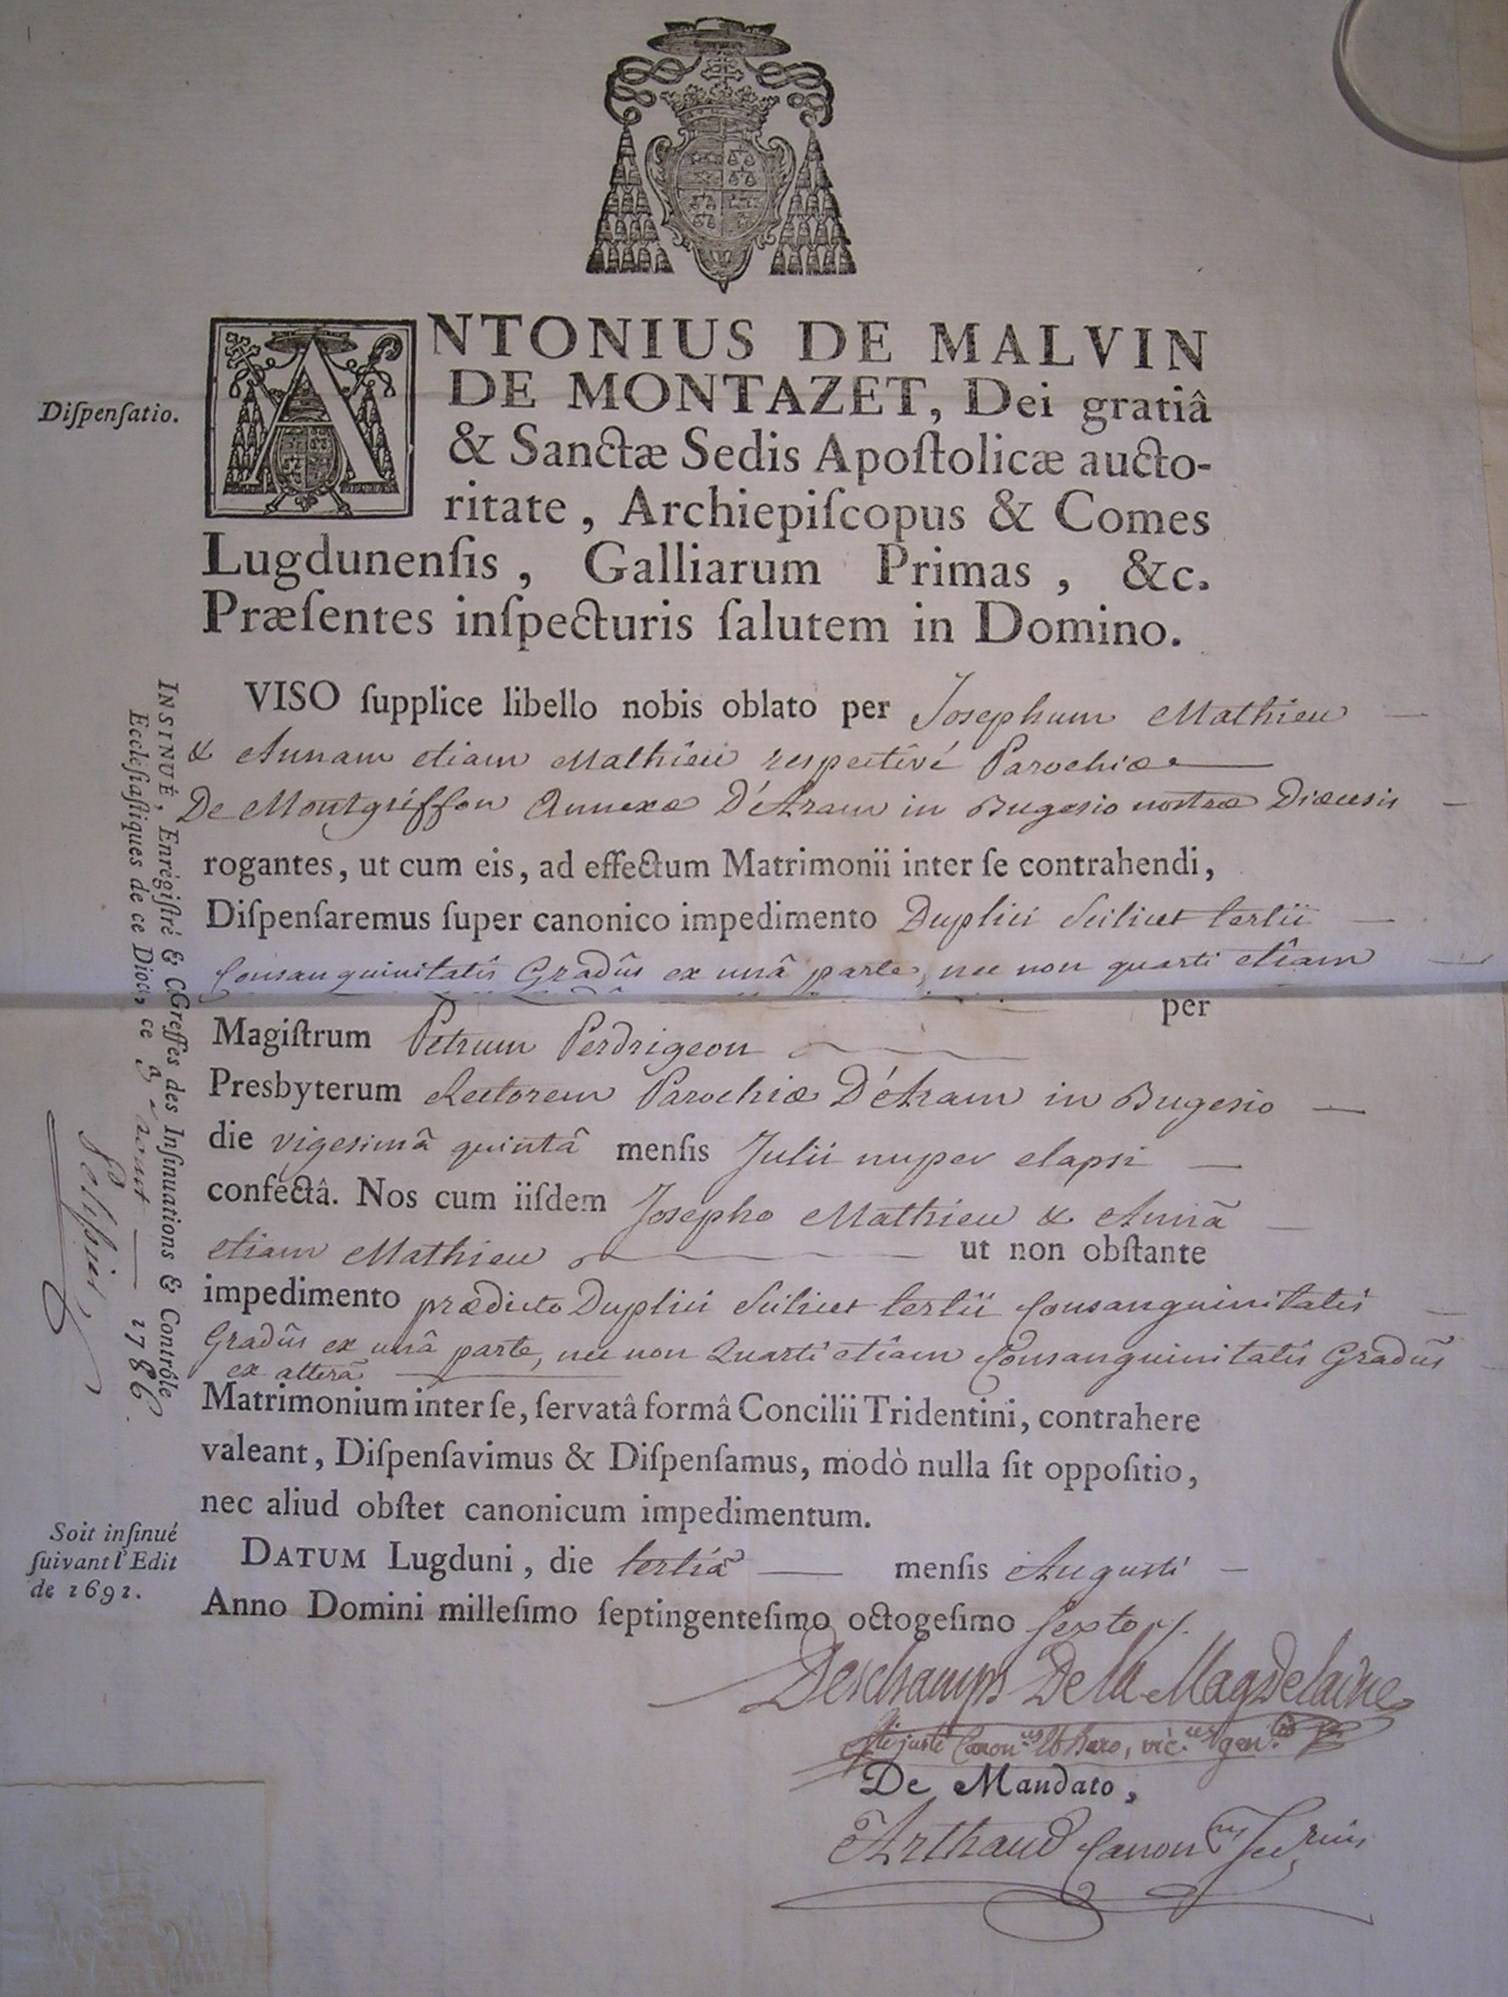 ANTONIUS DE MALVIN
DE MONTAZET, Dei gratiâ
Dispensatio.
& Sanctæ Sedis Apostolicæ aucto-
ritate, Archiepiscopus & Comes
Lugdunensis, Galliarum Primas, &c.
Præsentes inspecturis salutem in Domino.
VISO supplice libello nobis oblato per Josephum Mathieu
& Annam etiam Mathieu respectivé Parochiæ
De Montgriffon Annexæ D'Aram in Bugesio nostræ Diœcesis
rogantes, ut cum eis, ad effectum Matrimonii inter se contrahendi,
Dispensaremus super canonico impedimento Duplici Scilicet tertii
Consanguinitatis Gradûs ex unâ parte, nec non quarti etiam
per
Magistrum Petrum Perdrigeon
Presbyterum Rectorem Parochiæ D'Aram in Bugesio
die vigesimâ quintâ mensis Julii nuper elapsi
confectâ. Nos cum iisdem Josepho Mathieu & Annâ
etiam Mathieu ut non obstante
impedimento prædicto Duplici Scilicet tertii Consanguinitatis
Gradûs ex unâ parte, nec non Quarti etiam Consanguinitatis Gradûs
ex alterâ
Matrimonium inter se, servatâ formâ Concilii Tridentini, contrahere
valeant, Dispensavimus & Dispensamus, modò nulla sit oppositio,
nec aliud obstet canonicum impedimentum.
DATUM Lugduni, die tertiâ mensis Augusti
Anno Domini millesimo septingentesimo octogesimo sexto
Deschamps De la Magdelaine
Sti justi Canon.us & Baro, vic.us gen.lis
De Mandato,
Arthaud Canon.us
INSINUÉ, Enrégistré & C Greffes des Insinuations & Contrôle
Ecclésiastiques de ce Dioc, ce 9 aout 1786.
Soit insinué
suivant l'Edit
de 1691.